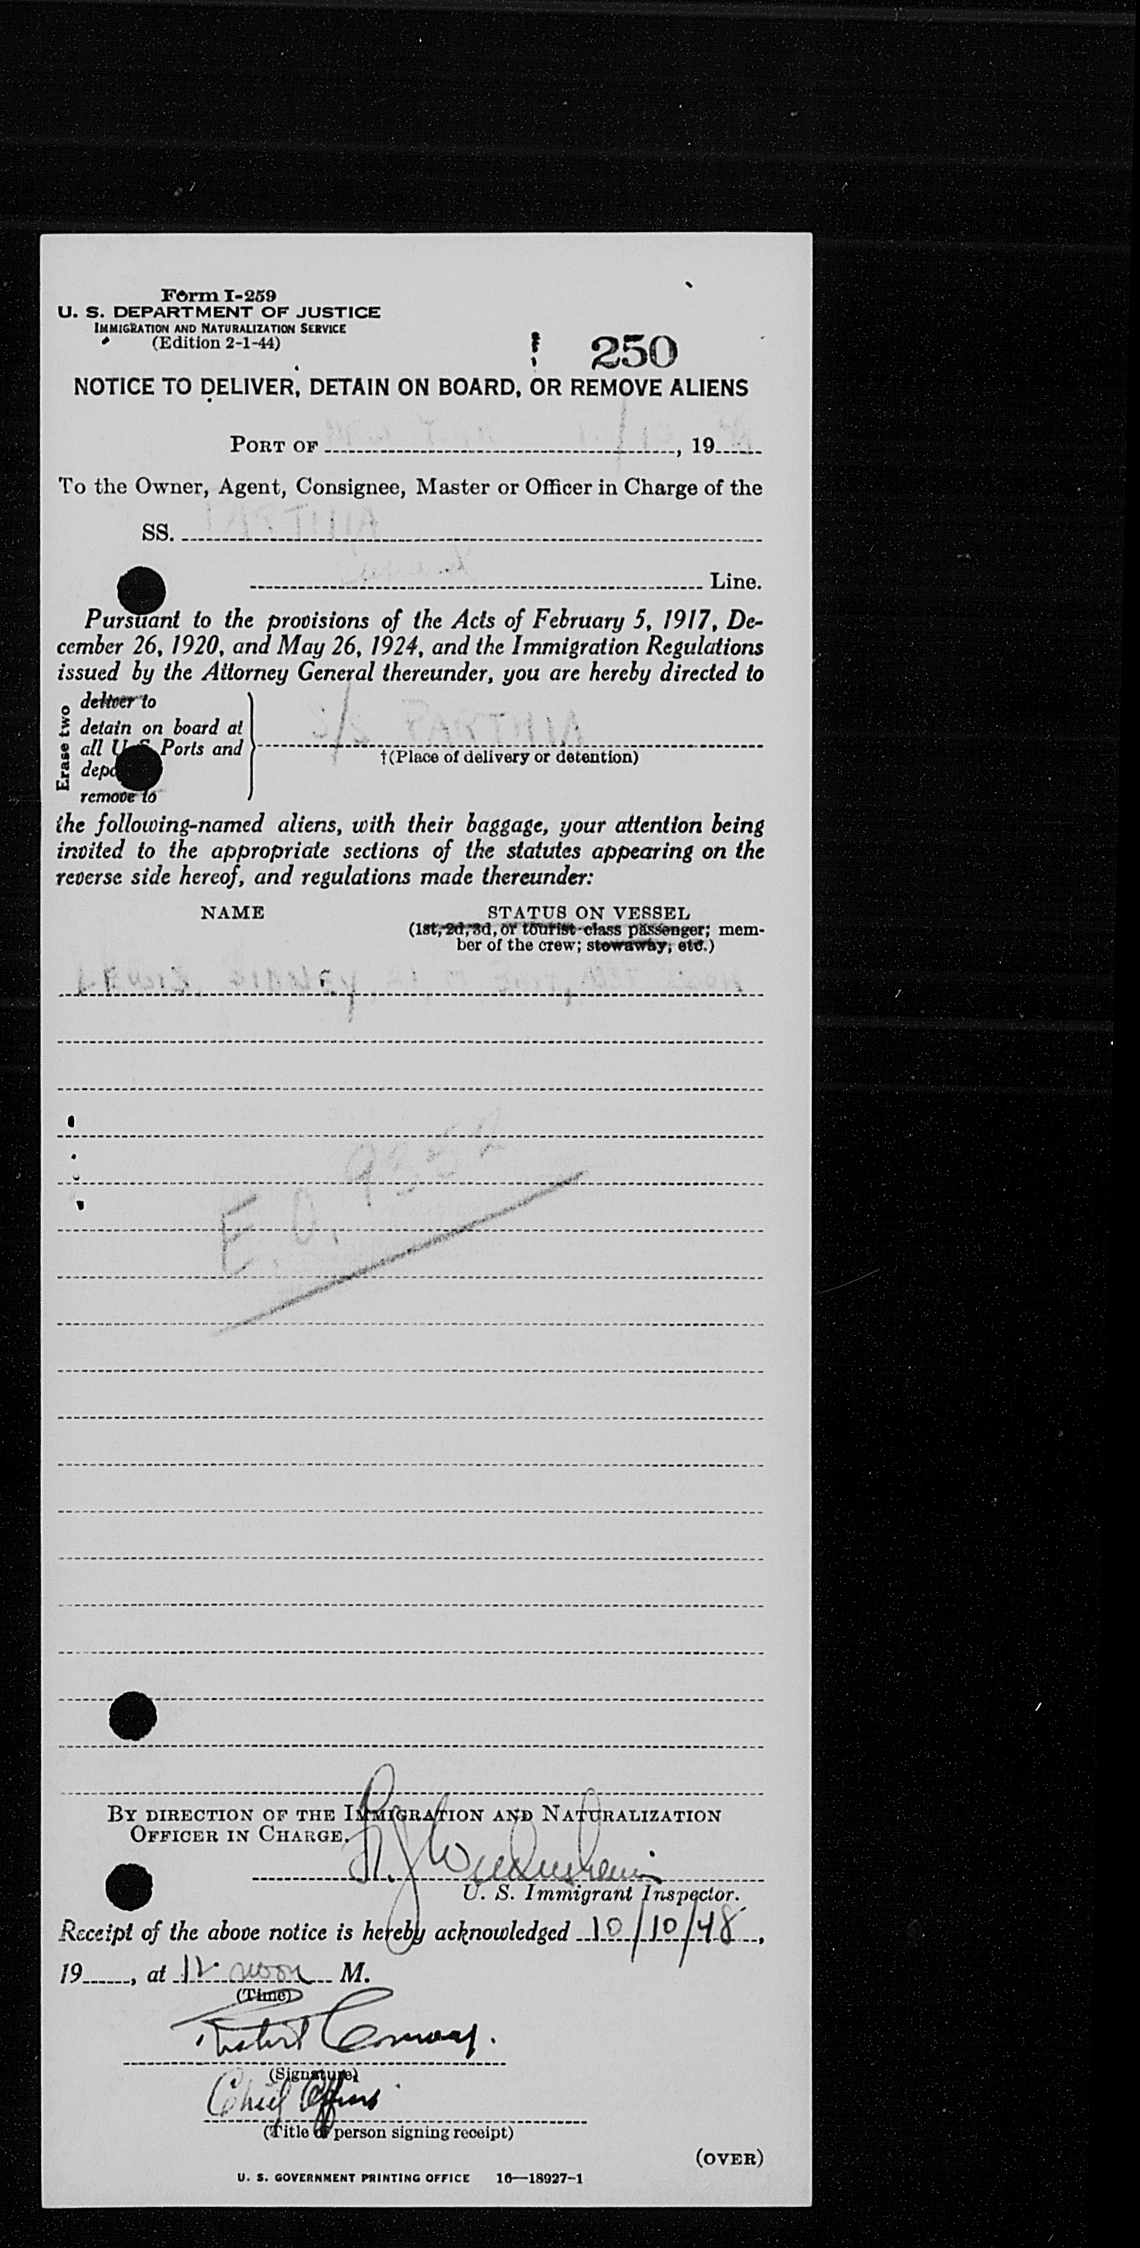 Form I-259
U. S. DEPARTMENT OF JUSTICE
IMMIGRATION AND NATURALIZATION SERVICE
(Edition 2-1-44)
250
NOTICE TO DELIVER, DETAIN ON BOARD, OR REMOVE ALIENS
PORT OF , 19
To the Owner, Agent, Consignee, Master or Officer in Charge of the
SS.
Line.
Pursuant to the provisions of the Acts of February 5, 1917, De-
cember 26, 1920, and May 26, 1924, and the Immigration Regulations
issued by the Attorney General thereunder, you are hereby directed to
Erase two
deliver to
detain on board at
all U. S. Ports and
remove to
†(Place of delivery or detention)
the following-named aliens, with their baggage, your attention being
invited to the appropriate sections of the statutes appearing on the
reverse side hereof, and regulations made thereunder:
NAME STATUS ON VESSEL
(1st, 2d, 3d, or tourist-class passenger; mem-
ber of the crew; stowaway, etc.)
E.O. 9352
BY DIRECTION OF THE IMMIGRATION AND NATURALIZATION
OFFICER IN CHARGE.
U. S. Immigrant Inspector.
Receipt of the above notice is hereby acknowledged 10/10/48,
19, at 12 noon M.
(Time)
Robert Conway.
(Signature)
Chief Officer
(Title of person signing receipt)
(OVER)
U. S. GOVERNMENT PRINTING OFFICE 16—18927-1